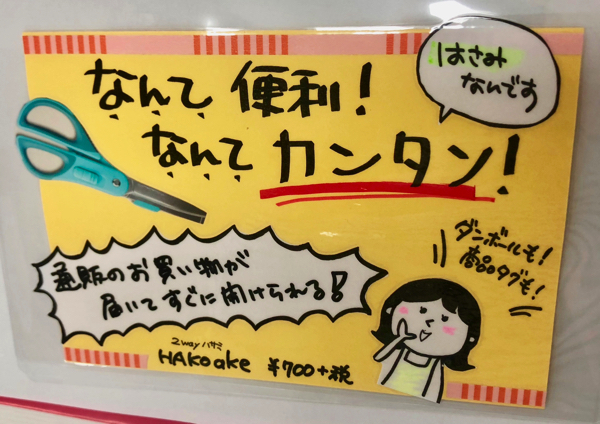 はさみ
なんです
なんて 便利!
なんて カンタン!
ダンボールも!
商品タグも!
通販のお買い物が
届いてすぐに開けられる!
2wayハサミ
HAKoake ¥700+税